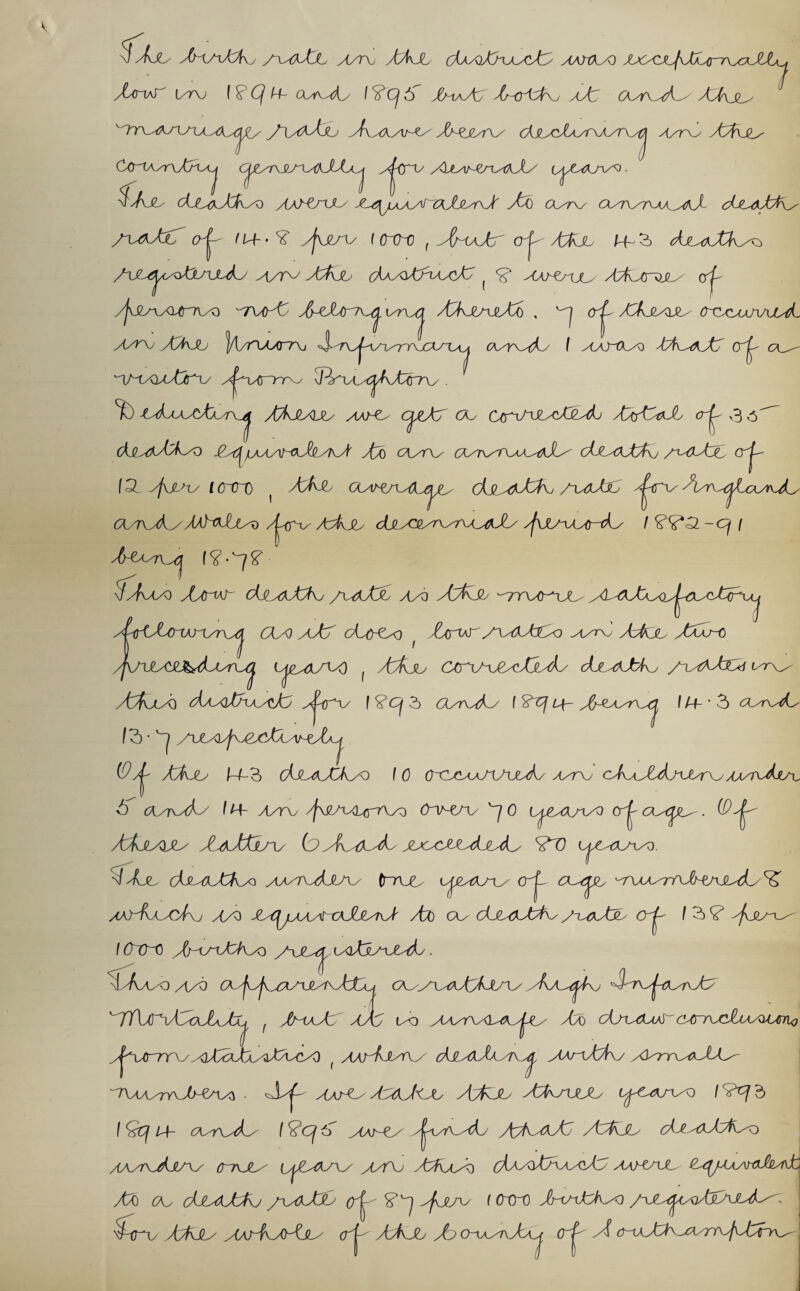 The birth rate in the district was exceptionally
low in 1894 and 1895 but both at and the
marriage rate have been declining in the
County generally for several years.
The deaths were equivalent to an annual deathrate
of 14.8 per 1000, but of the 43 deaths
registered in the district, 8 were those of
persons not belonging thereto. 7 of these occurred
in the Krumen Infirmary and 1 was that of a
visitor from Brighton.
Deducting these we get a corrected total of 35
deaths equivalent to an annual death rate of
12 per 1000, the average death rate for England
and Wales for the decennial period 1882-91
being 18.78
This low death rate is the more satisfactory
following as it does, low rates in the two
preceeding years, the corrected death rates in
this district for 1893 and 1894 being 14.3 and
13.7 respectively.
Of the 43 deaths 10 occurred in children under
5 and 14 in persons over 70 years of age. Of
these latter 6 had exceeded 80 years.
The deaths under one year of age numbered 8
which is equivalent to a death rate of 138 per
1000 births registered.
This is apparently a rather high Infant
Mortality, but it is unsafe to draw conclusions
from statistics, when dealing with small
numbers. If we take the three years 1893
1894 and 1895 we find that the deaths
under one year in this district were equivalent
to a death rate of 87 per 1000 births registered.
For the whole of the County of Southampton